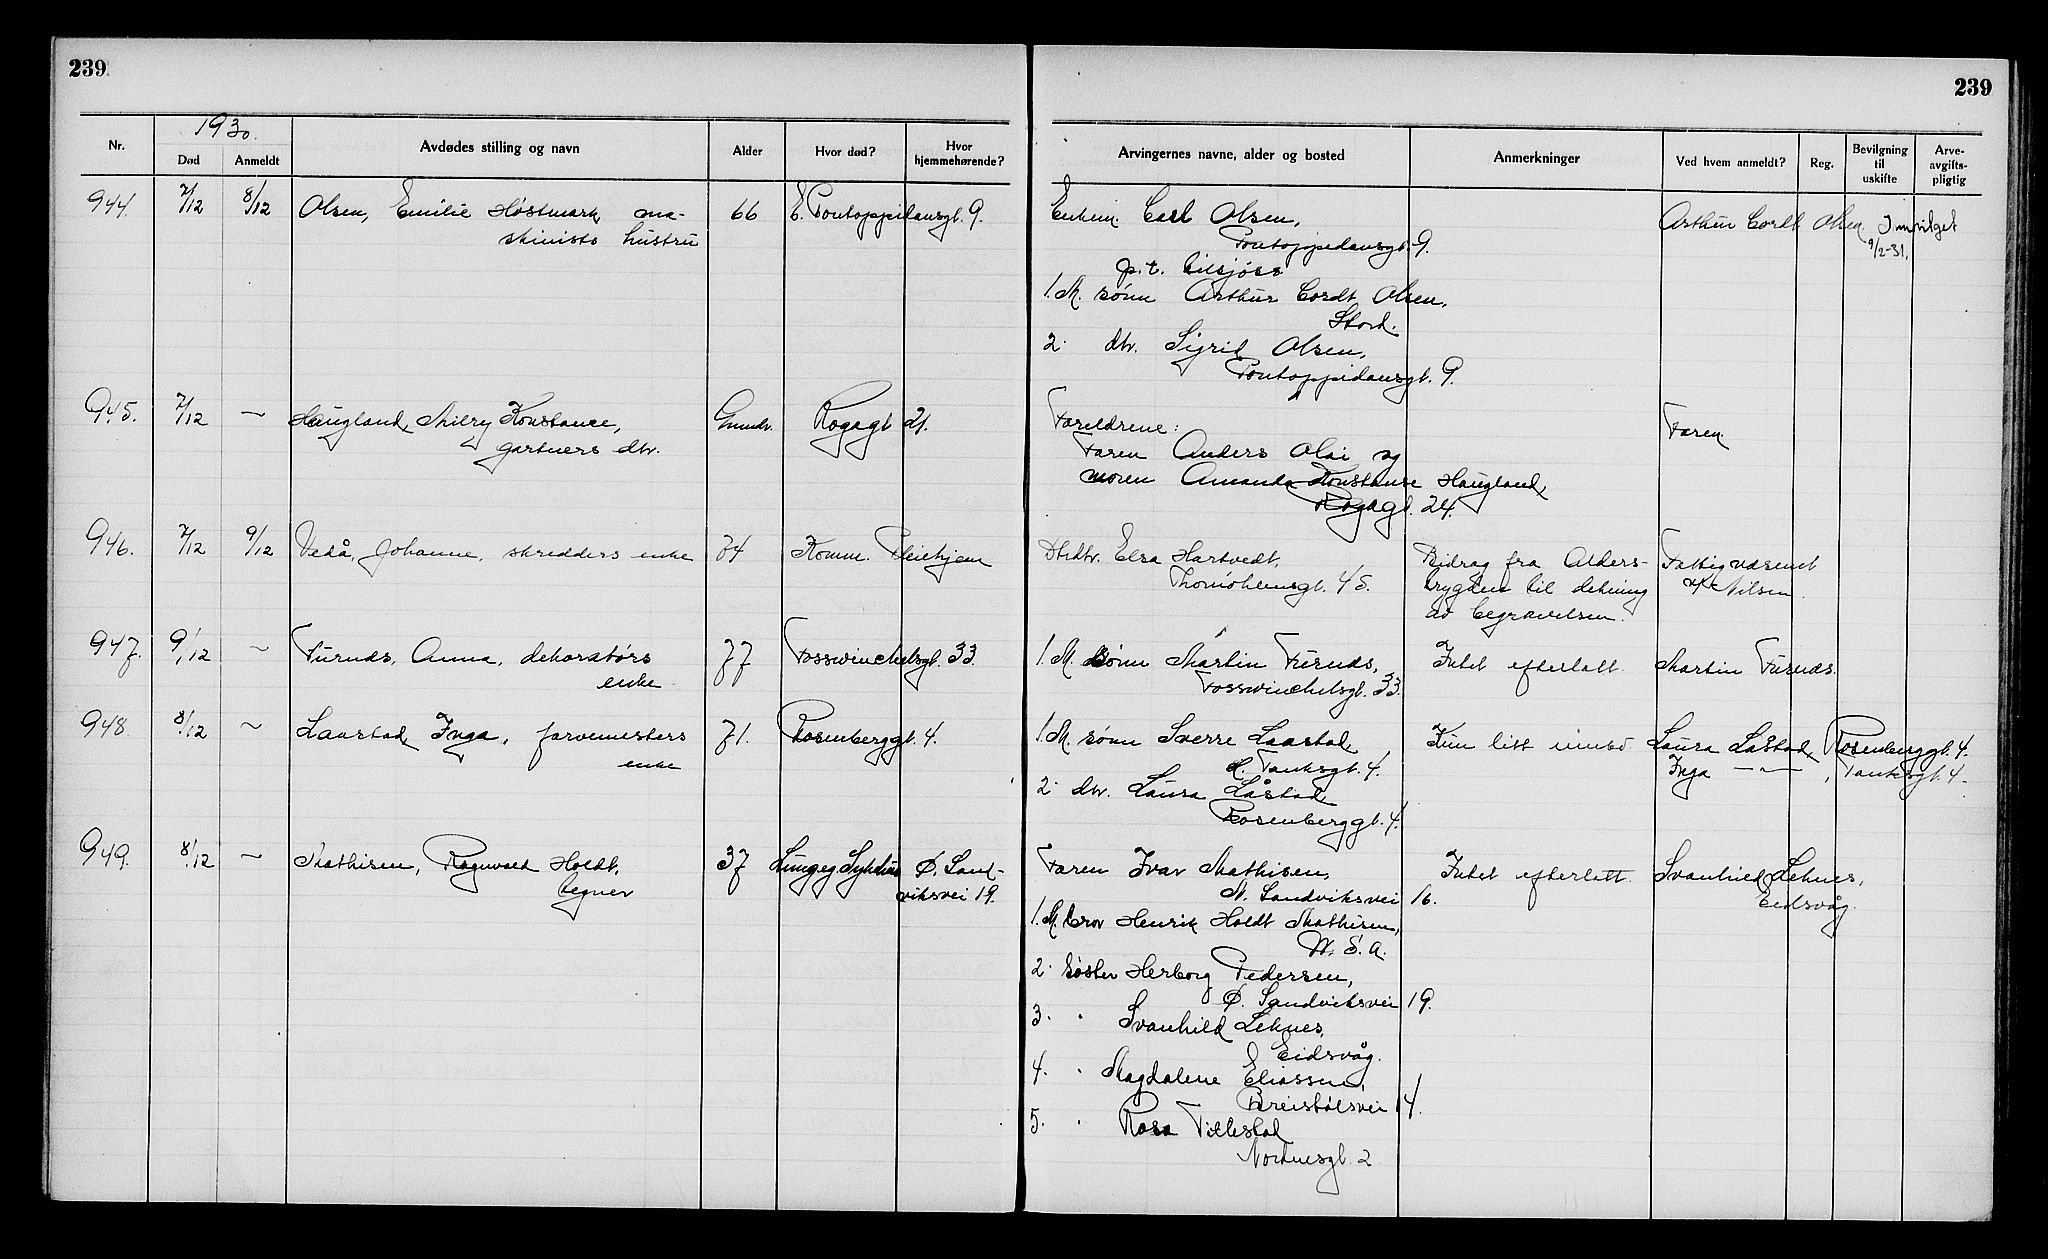 239
239
Nr.
1930.
Død
Anmeldt
Avdødes stilling og navn
Alder
Hvor død?
Hvor
hjemmehørende?
Arvingernes navne, alder og bosted
Anmerkninger
Ved hvem anmeldt?
Reg.
Bevilgning
til
uskifte
Arve-
avgifts-
pligtig
944. 7/12 8/12 Olsen, Emilie Høstmark, ma- 66 E. Pontoppidansgt. 9.
skinists hustru
Enkem. Carl Olsen,
Pontoppidansgt. 9.
p.t. tilsjøss
1. M. sønn Arthur Cordt Olsen,
Stord.
2. dtr. Sigrid Olsen,
Pontoppidansgt. 9.
Arthur Cordt Olsen. Innvilget
9/2-31.
945. 7/12 — Haugland, Konstance, Rogagt 21.
gartners dtr.
Foreldrene:
Faren Anders Olai og
moren Amanda Konstanse Haugland,
Rogagt. 24.
Faren
946. 7/12 9/12 Vedå, Johanne, skredders enke 74 Komm. Pleiehjem
Elsa Hartvedt,
Thormøhlensgt. 45.
Bidrag fra Alders-
trygden til dekning
av begravelsen.
Fattigvæsenet
v/ Nilsen
947. 9/12 — Furnds, Anna, dekoratørs 77 Fosswinckelsgt. 33.
enke
1. M. sønn Martin Furnds,
Fosswinckelsgt. 33.
Intet efterlatt. Martin Furnds.
948. 8/12 — Laastad, Inga, farvemesters 71. Rosenberggt. 4.
enke
1. M. sønn Sverre Laastad,
L. Tanksgt. 4.
2. dtr. Laura Låstad
Rosenberggt. 4.
Kun litt innbo Laura Låstad, Rosenberggt. 4.
Inga — " — , Tanksgt. 4.
949. 8/12 — Mathisen, Ragnvald Holdt, 37 Lungeg. Sykehus Ø. Sand-
tegner viksvei 19.
Faren Ivar Mathisen,
N. Sandviksvei 16.
1. M. bror Henrik Holdt Mathisen,
U. S. A.
2. søster Herborg Pedersen,
Ø. Sandviksvei 19.
3. " Svanhild Leknes,
Eidsvåg.
4. " Magdalene Eliassen,
Breistølsvei 14.
5. " Rosa Tillestad
Nordnesgt. 2
Intet efterlatt. Svanhild Leknes,
Eidsvåg.